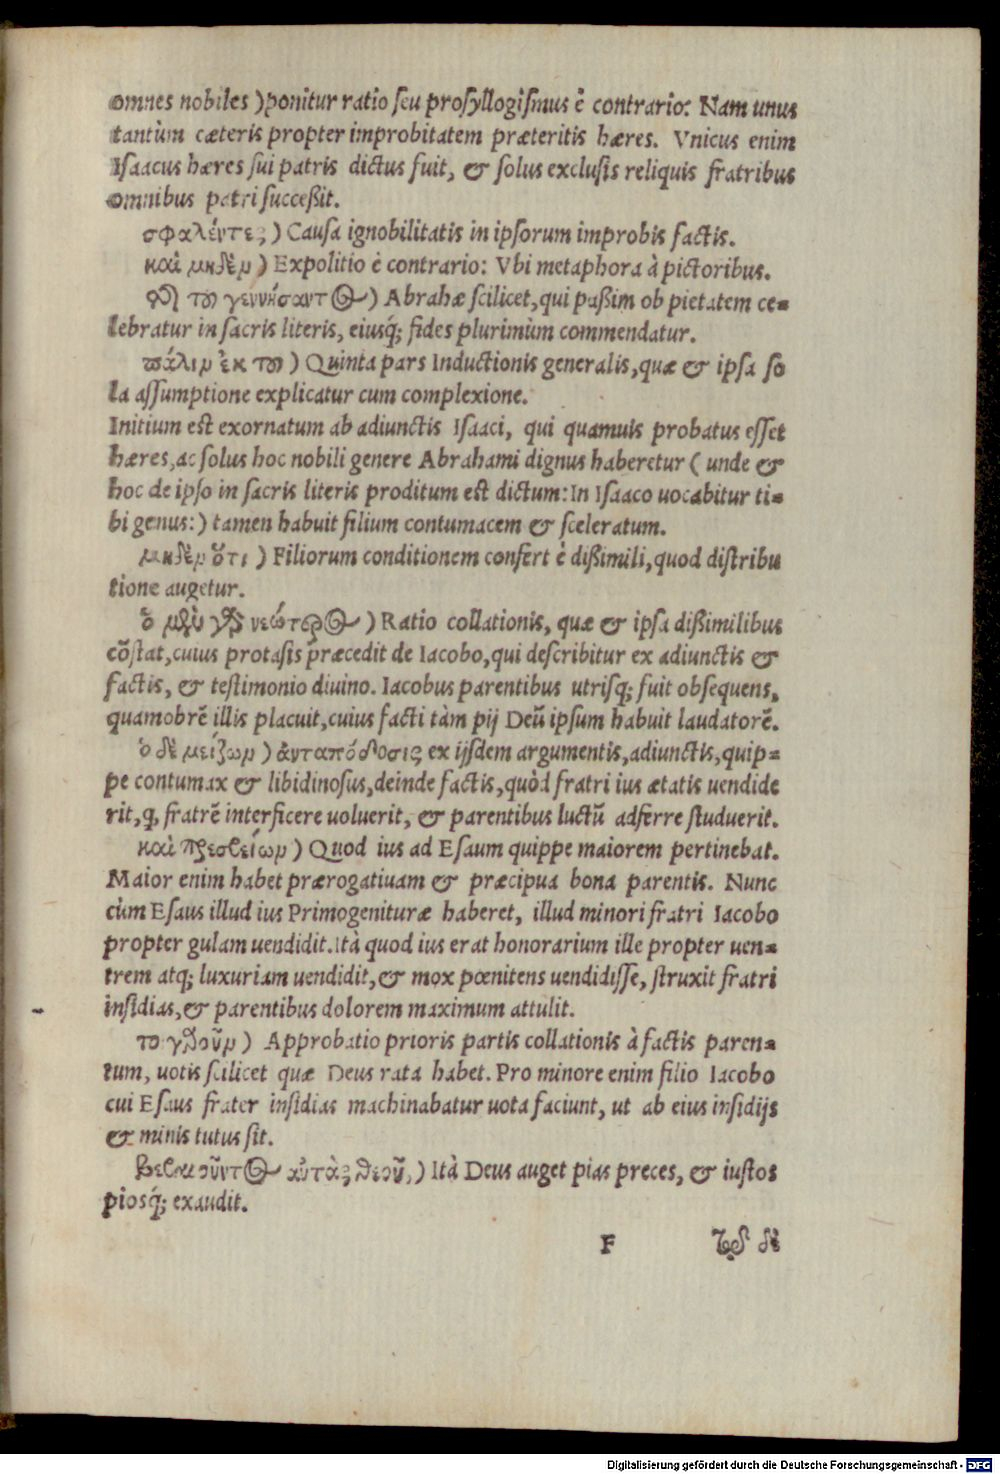 omnes nobiles )ponitur ratio ſeu proſyllogiſmus è contrario: Nam unus
tantùm cæteris propter improbitatem præteritis hæres. Vnicus enim
Iſaacus hæres ſui patris dictus fuit, & ſolus excluſis reliquis fratribus
omnibus patri ſucceßit.
σφαλέντες ) Cauſa ignobilitatis in ipſorum improbis factis.
καὶ μηδὲν ) Expolitio è contrario: Vbi metaphora à pictoribus.
τοῦ γεννήσαντος ) Abrahæ ſcilicet, qui paßim ob pietatem ce-
lebratur in ſacris literis, eiusq́; fides plurimùm commendatur.
πάλιν ἐκ τοῦ ) Quinta pars Inductionis generalis, quæ & ipſa ſo
la aſſumptione explicatur cum complexione.
Initium eſt exornatum ab adiunctis Iſaaci, qui quamuis probatus eſſet
hæres, ac ſolus hoc nobili genere Abrahami dignus haberetur ( unde &
hoc de ipſo in ſacris literis proditum eſt dictum: In Iſaaco uocabitur ti-
bi genus: ) tamen habuit filium contumacem & ſceleratum.
μηδὲν ὅτι ) Filiorum conditionem confert è dißimili, quod diſtribu
tione augetur.
ὁ μὲν γὰρ νεώτερος ) Ratio collationis, quæ & ipſa dißimilibus
cõſtat, cuius protaſis præcedit de Iacobo, qui deſcribitur ex adiunctis &
factis, & teſtimonio diuino. Iacobus parentibus utriſq; fuit obſequens,
quamobrẽ illis placuit, cuius facti tàm pij Deũ ipſum habuit laudatorẽ.
ὁ δὲ μείζων ) ἀνταπόδοσις ex ijſdem argumentis, adiunctis, quip-
pe contumax & libidinoſus, deinde factis, quòd fratri ius ætatis uendide
rit, q, fratrẽ interficere uoluerit, & parentibus luctũ adferre ſtuduerit.
καὶ πρεσβείων ) Quod ius ad Eſaum quippe maiorem pertinebat.
Maior enim habet prærogatiuam & præcipua bona parentis. Nunc
cùm Eſaus illud ius Primogenituræ haberet, illud minori fratri Iacobo
propter gulam uendidit. Ità quod ius erat honorarium ille propter uen-
trem atq; luxuriam uendidit, & mox pœnitens uendidiſſe, ſtruxit fratri
inſidias, & parentibus dolorem maximum attulit.
τοιγαροῦν ) Approbatio prioris partis collationis à factis paren-
tum, uotis ſcilicet quæ Deus rata habet. Pro minore enim filio Iacobo
cui Eſaus frater inſidias machinabatur uota faciunt, ut ab eius inſidijs
& minis tutus ſit.
βεβαιοῦντος αὐτὰς θεοῦ, ) Ità Deus auget pias preces, & iuſtos
piosq́; exaudit.
F
τῷ δὲ
Digitalisierung gefördert durch die Deutsche Forschungsgemeinschaft - DFG